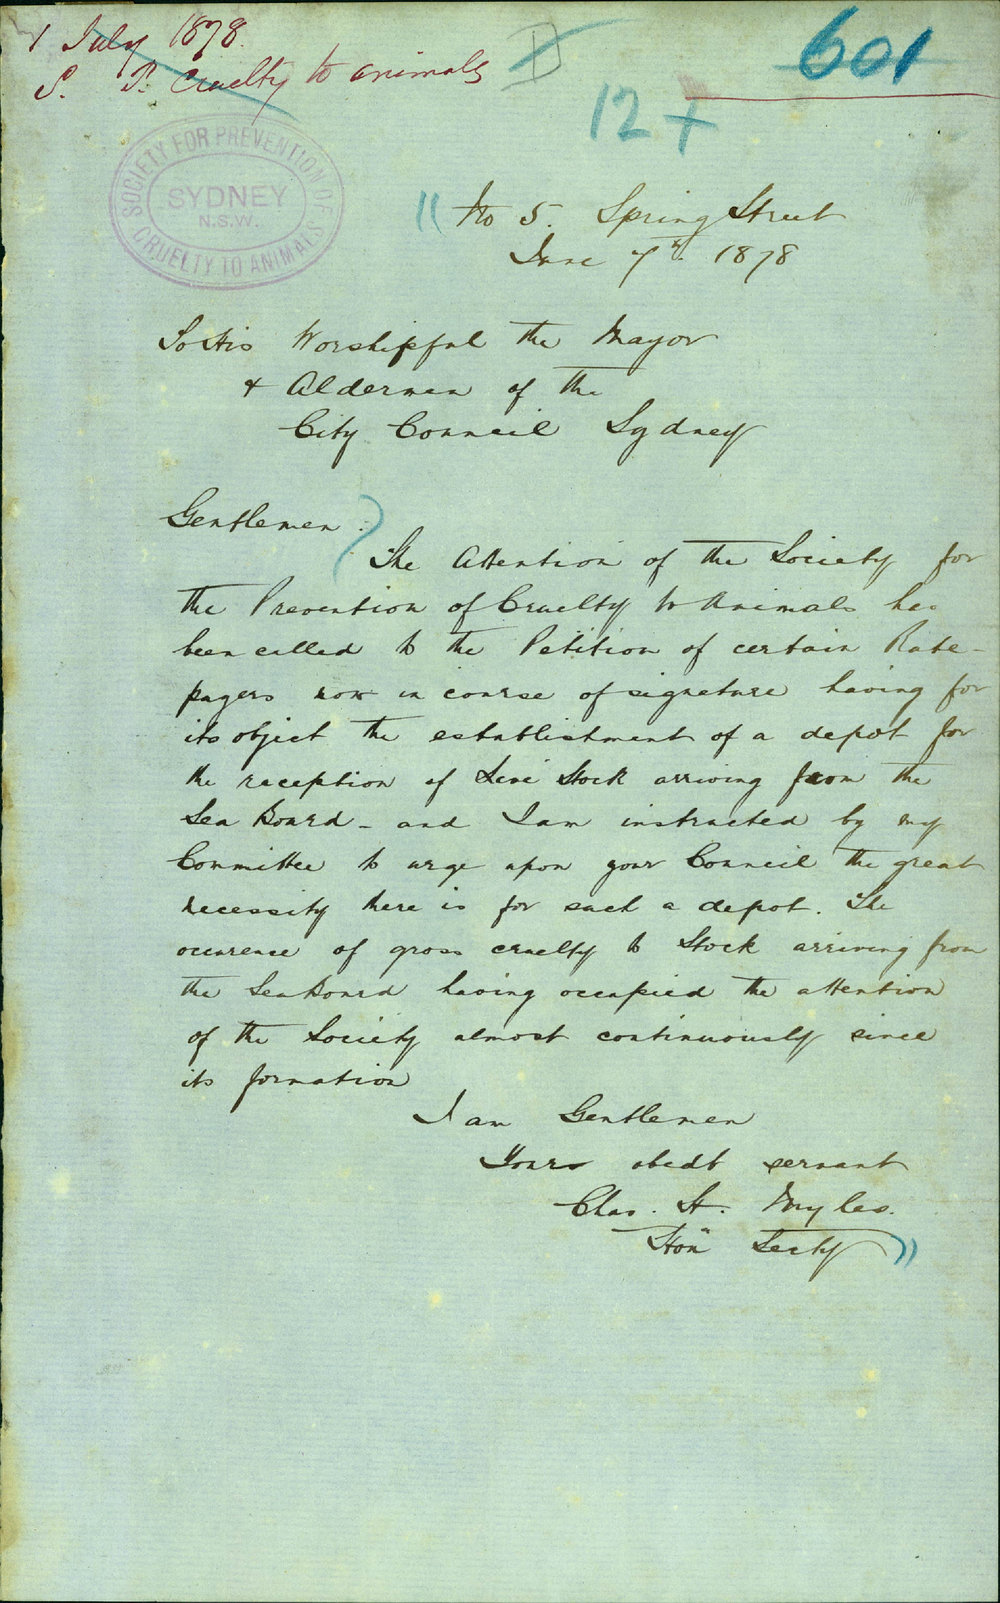 1 July 1878.
S. P. Cruelty to animals
D
601
127
SOCIETY FOR PREVENTION OF
CRUELTY TO ANIMALS
SYDNEY
N.S.W.
No 5. Spring Street
June 7th. 1878
To His Worshipful the Mayor
& Aldermen of the
City Council Sydney
Gentlemen.
The Attention of the Society for
the Prevention of Cruelty to Animals has
been called to the Petition of certain Rate-
payers now in course of signature having for
its object the establishment of a depot for
the reception of Live Stock arriving from the
Sea Board - and I am instructed by my
Committee to urge upon your Council the great
necessity there is for such a depot. The
occurence of gross cruelty to Stock arriving from
the Sea Board having occupied the attention
of the Society almost continuously since
its formation
I am Gentlemen
Yours obedt servant
Chas. H. Myles.
Hon Secty